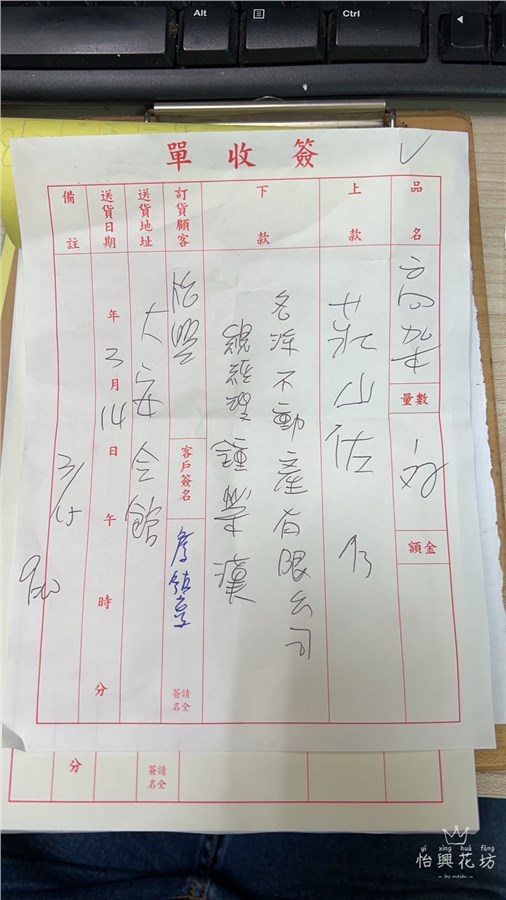 Alt
Ctrl
簽收單
品名
高架
數量
金額
上款
下款
名洋不動產有限公司
總經理
訂貨顧客
怡興
客戶簽名
請全簽名
送貨地址
大安會館
送貨日期
年3月14日午時分
備註
3/15
900
分
請全簽名
yí xìng huā fāng
怡興花坊